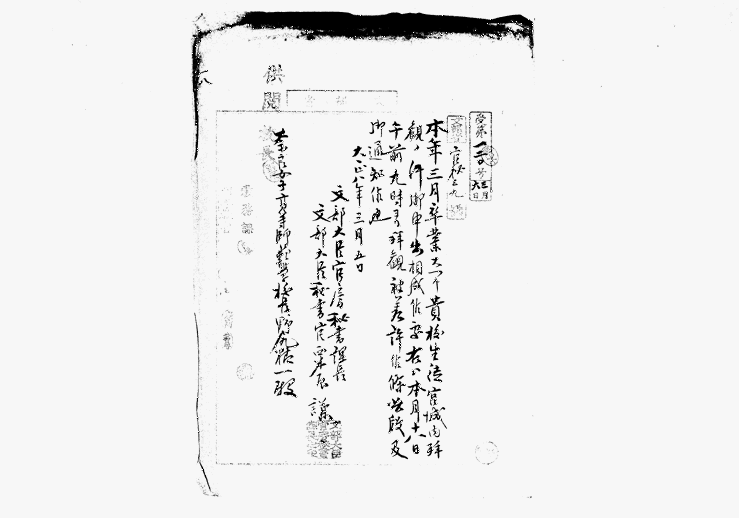 供閲
受第一三〇号
官秘三九
本年三月卒業スヘキ貴校生徒宮城内拝
観ノ件御申出相成候処右ハ本月十八日
午前九時ヨリ拝観被差許候條此段及
御通知候也
大正八年三月五日
文部大臣官房秘書課長
文部大臣秘書官粟屋謙
奈良女子高等師範学校長野尻精一殿